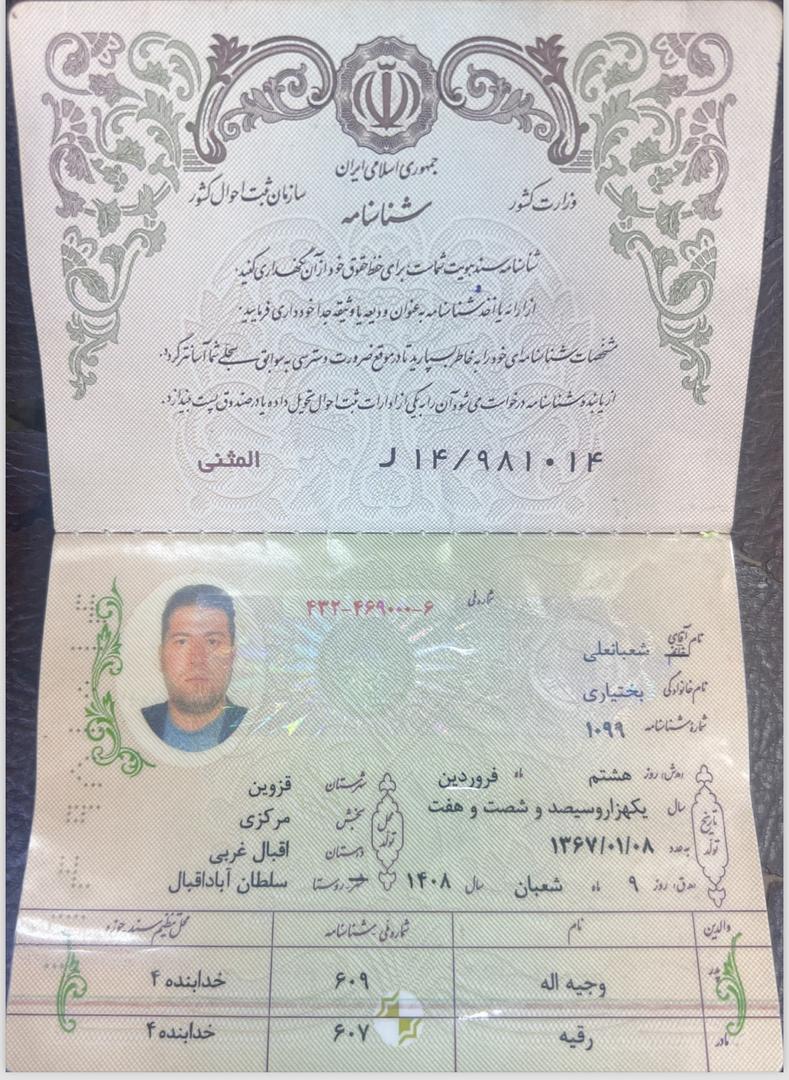 جمهوری اسلامی ایران
وزارت کشور
سازمان ثبت احوال کشور
شناسنامه
شناسنامه سند هویت شماست برای حفظ حقوق خود از آن نگهداری کنید.
از ارائه یا اخذ شناسنامه به عنوان ودیعه یا وثیقه جداً خودداری فرمایید.
مشخصات شناسنامه‌ای خود را به خاطر بسپارید تا در موقع ضرورت دسترسی به سوابق سجلی شما آسانتر گردد.
از یابنده شناسنامه درخواست می‌شود آن را به یکی از ادارات ثبت احوال تحویل داده یا در صندوق پست بیندازد.
۱۴/۹۸۱۰۱۴ ل المثنی
شماره ملی ۴۳۲-۴۶۹۰۰۰-۶
نام آقای خانم شعبانعلی
نام خانوادگی بختیاری
شماره شناسنامه ۱۰۹۹
تاریخ تولد
(ه‍.ش) روز هشتم ماه فروردین
سال یکهزاروسیصد و شصت و هفت
به عدد ۱۳۶۷/۰۱/۰۸
(ه‍.ق) روز ۹ ماه شعبان سال ۱۴۰۸
محل تولد
شهرستان قزوین
بخش مرکزی
دهستان اقبال غربی
شهر - روستا سلطان آباداقبال
والدین نام شماره ملی / شناسنامه محل تنظیم سند حوزه
پدر وجیه اله ۶۰۹ خدابنده ۴
مادر رقیه ۶۰۷ خدابنده ۴